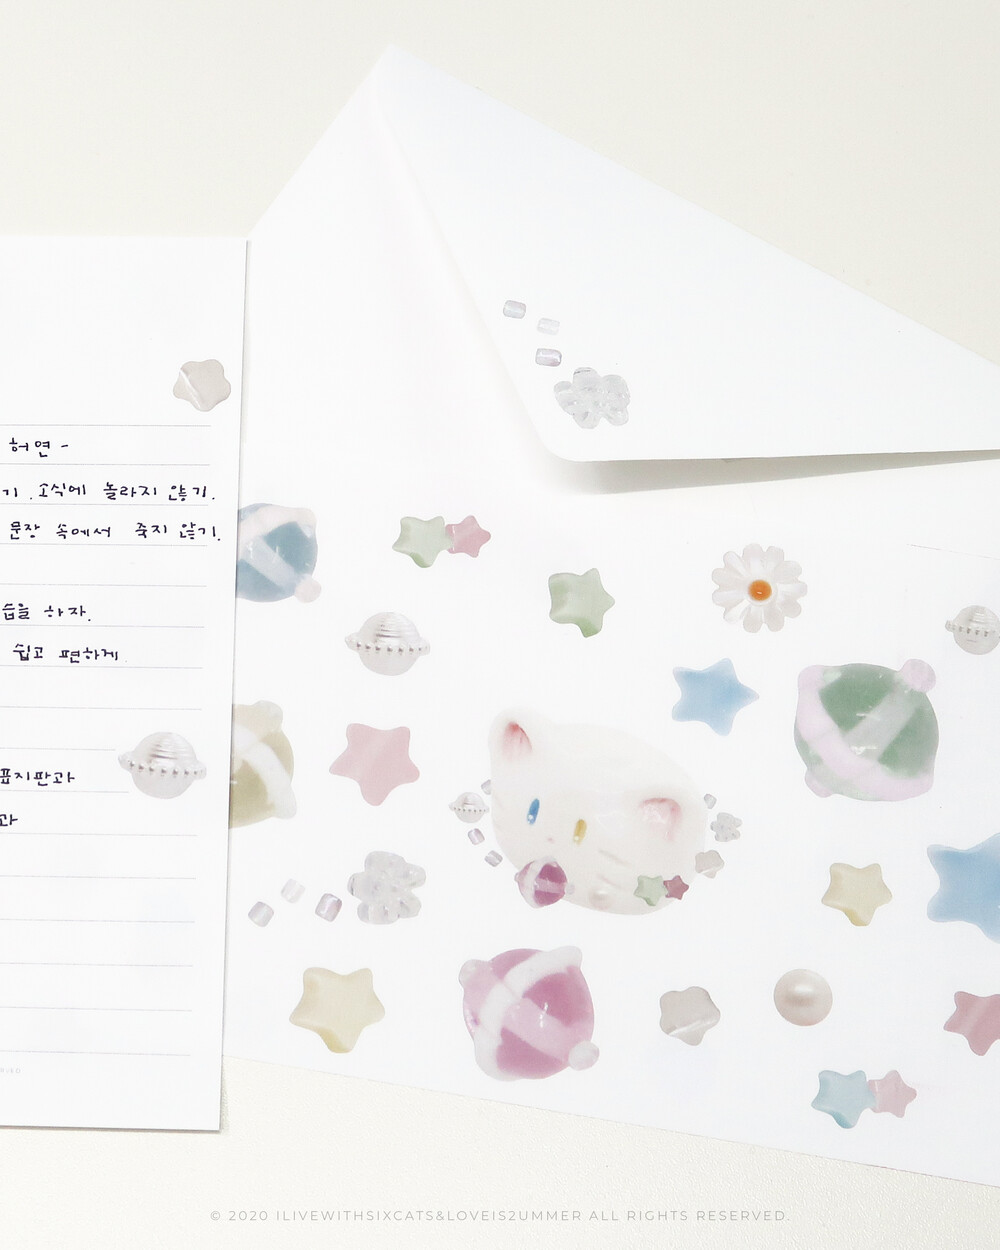 허연 -
기. 소식에 놀라지 않기.
문장 속에서 죽지 않기.
습을 하자.
쉽고 편하게
표지판과
과
© 2020 ILIVEWITHSIXCATS&LOVEIS2UMMER ALL RIGHTS RESERVED.